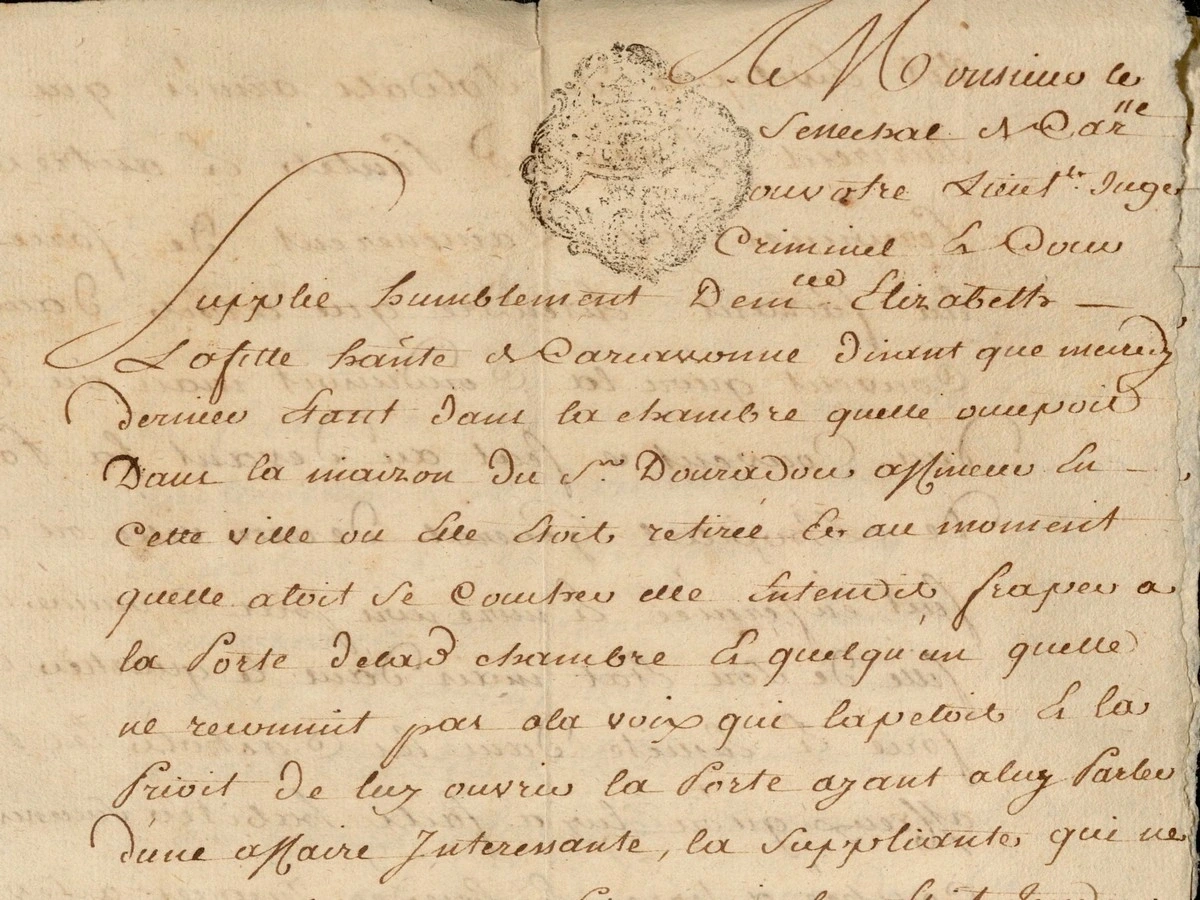 A Monsieur le
Senechal de Carne
ou votre Lieutr Juge
Criminel Et
Supplie humblement Demlle Elizabeth
Lafitte hante de Carcassonne disant que mercredy
dernier Etant dans la chambre quelle occupoit
Dans la maizon du Sr Douradou affineur En
Cette ville ou Elle Etoit retirée Et au moment
quelle aloit se Coucher elle Entendit fraper a
la Porte delad chambre Et quelqu'un quelle
ne reconnut pas ala voix qui lapeloit Et la
Prioit de luy ouvrir la Porte ayant aluy Parler
d'une affaire Interessante, la Suppliante qui ne